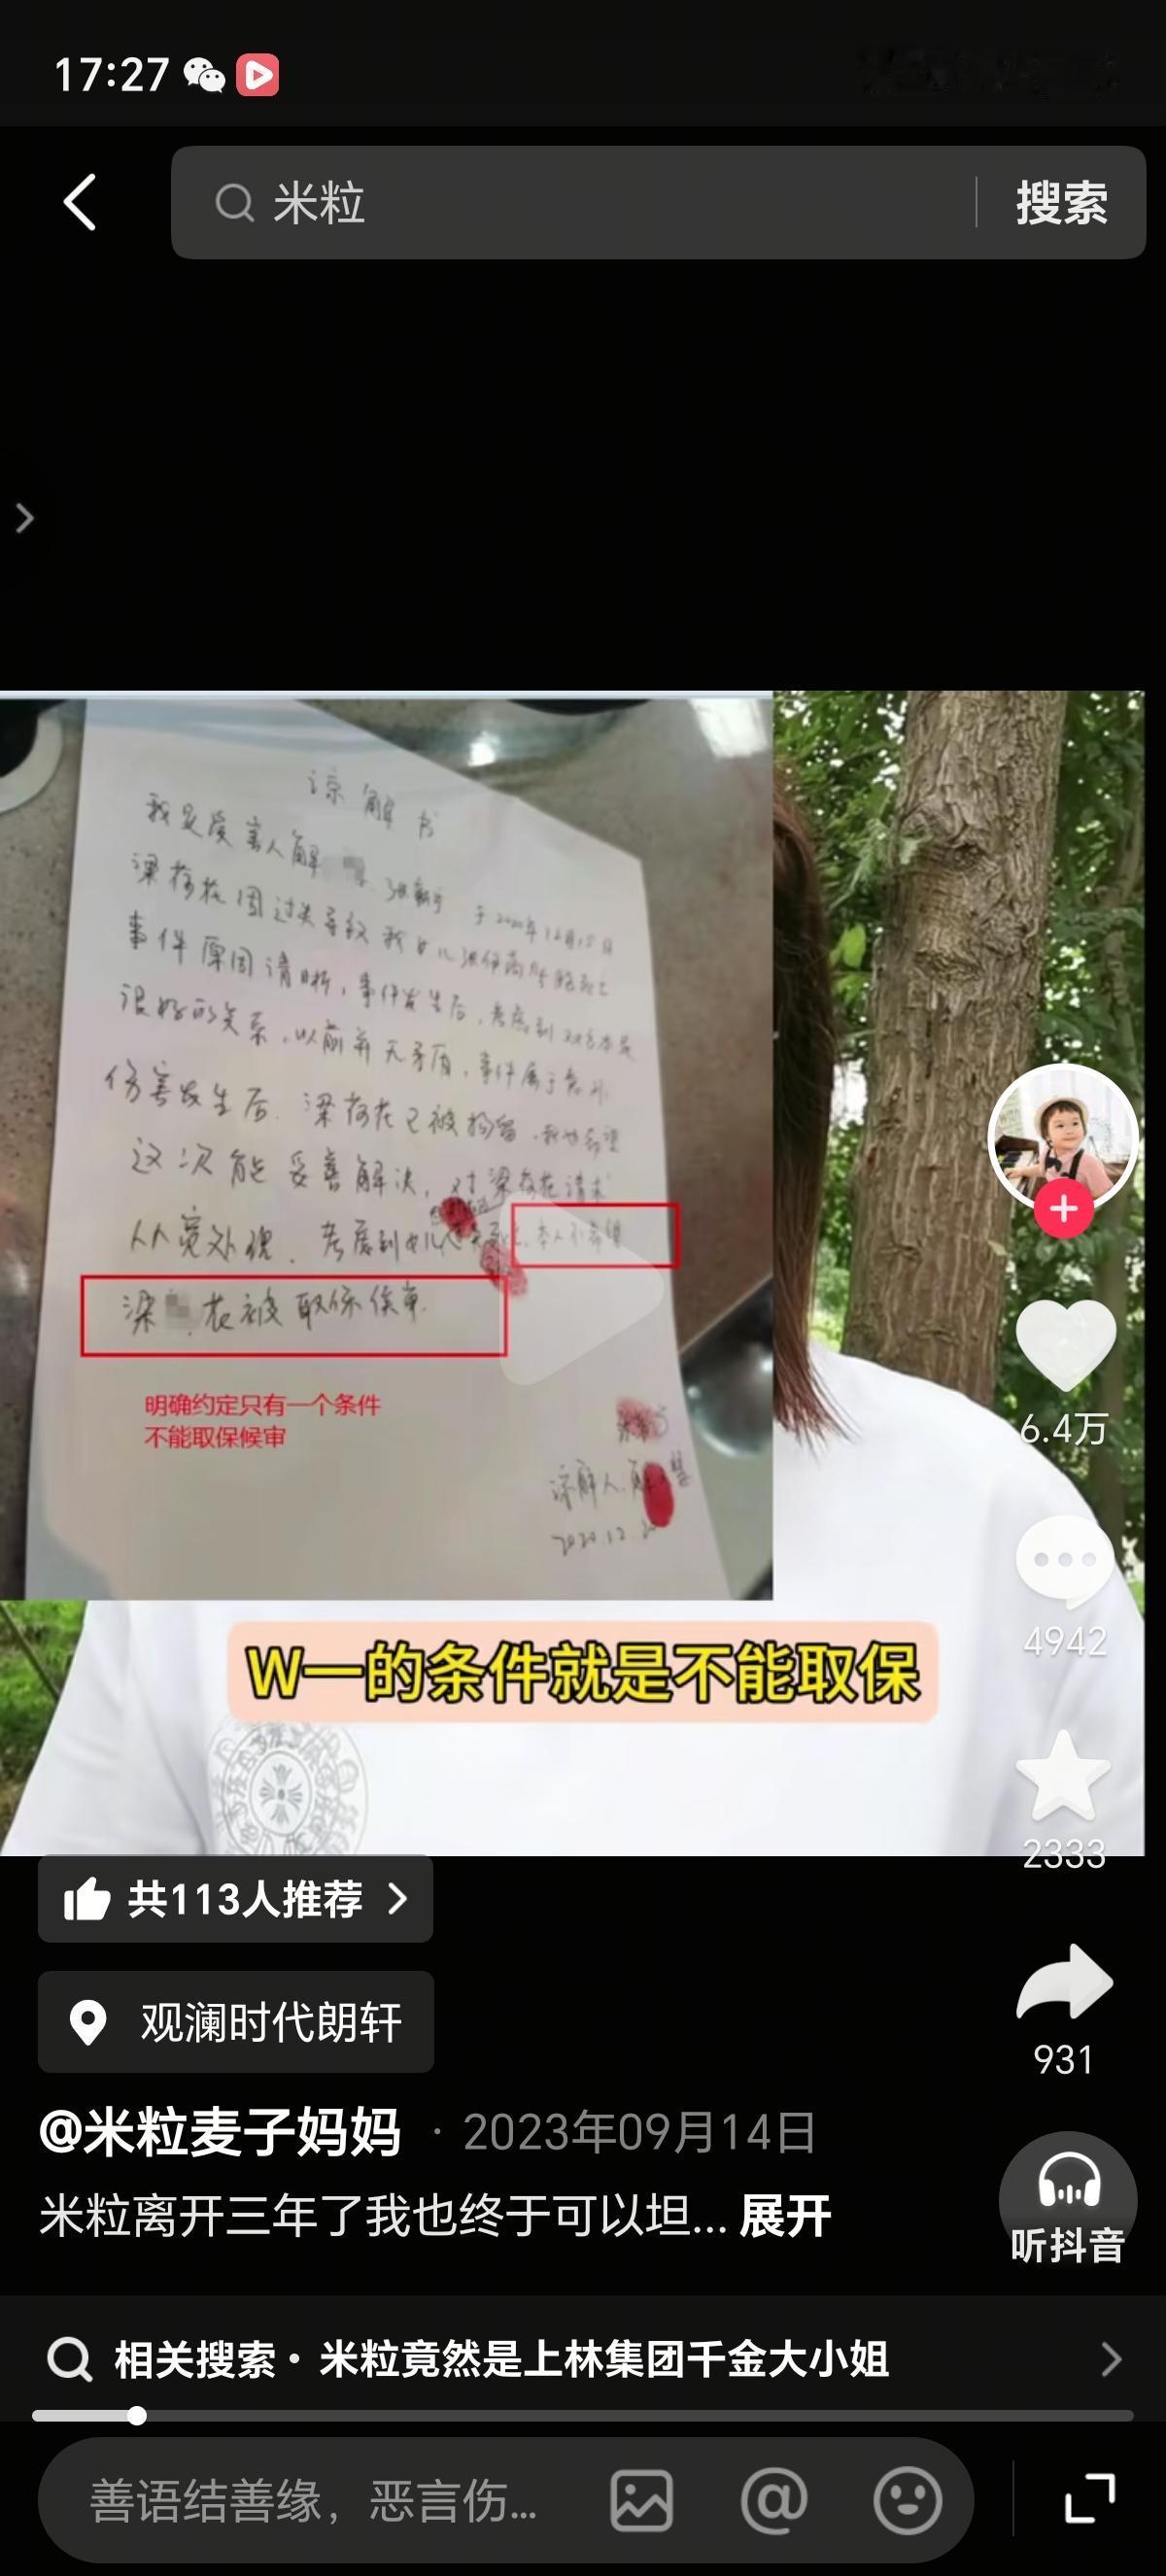 17:27
米粒
搜索
谅解书
我是受害人解
于2020年12月15日
梁荷花因过失导致我女儿
事件原因清晰，事件发生后，考虑到双方本是
很好的关系，以前并无矛盾，事件属于意外
伤害发生后，梁荷花已被拘留，我也希望
这次能妥善解决，对梁荷花请求
从宽处理，考虑到女儿 本人不希望
梁 花被取保侯审.
明确约定只有一个条件
不能取保候审
谅解人.解
2020.12.20
W一的条件就是不能取保
6.4万
4942
2333
共113人推荐
观澜时代朗轩
931
@米粒麦子妈妈 · 2023年09月14日
米粒离开三年了我也终于可以坦... 展开
听抖音
相关搜索· 米粒竟然是上林集团千金大小姐
善语结善缘，恶言伤...